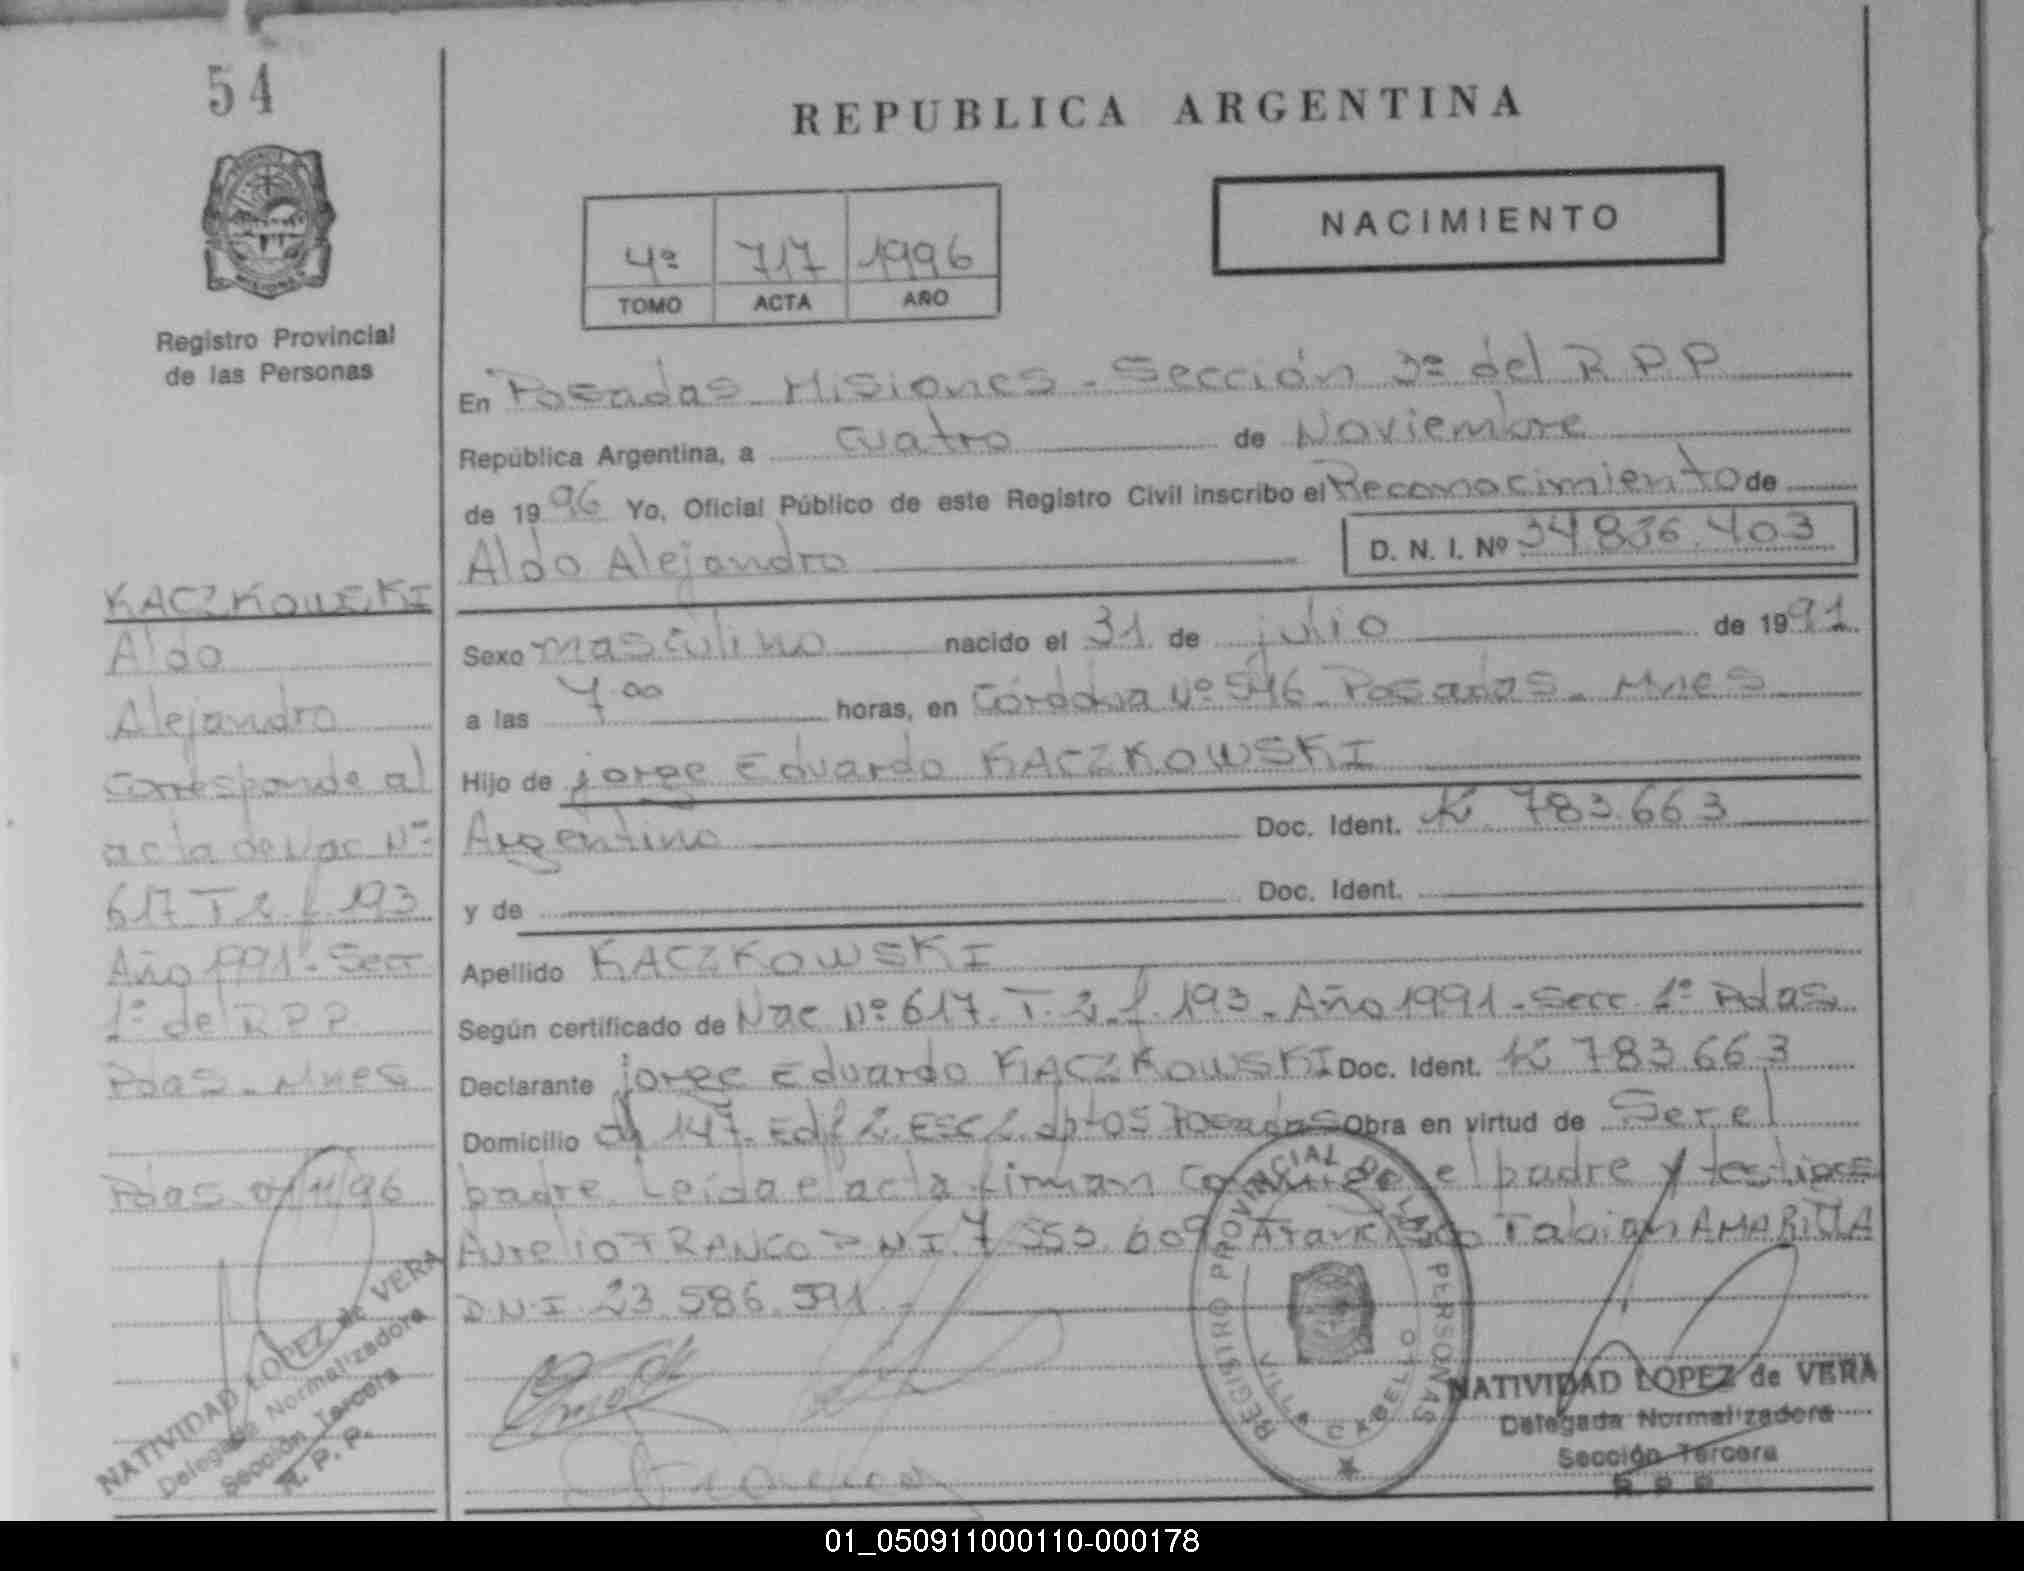 54
REPUBLICA ARGENTINA
NACIMIENTO
4º 717 1996
TOMO ACTA AÑO
Registro Provincial
de las Personas
En Posadas Misiones - Sección 3º del R P P
República Argentina, a cuatro de Noviembre
de 1996 Yo, Oficial Público de este Registro Civil inscribo el Reconocimiento de
Aldo Alejandro D. N. I. Nº 34.836.403
Sexo masculino nacido el 31 de julio de 1991
a las 7.00 horas, en Córdova Nº 546 Posadas - Mnes
Hijo de jorge Eduardo KACZKOWSKI
Argentino Doc. Ident. K 783.663
y de Doc. Ident.
Apellido KACZKOWSKI
Según certificado de Nac Nº 617. T. 2. f. 193 - Año 1991 - Secc 1º Pdas
Declarante jorge Eduardo KACZKOWSKI Doc. Ident. K 783.663
Domicilio 147 Edif 2 ESC 2 dptos Posadas Obra en virtud de Ser el
padre. Leida el acta firman conmigo el padre y testigos
Aurelio FRANCO D.N.I. 7.553.609 Fabian AMARILLA
D.N.I. 23.586.591 -
KACZKOWSKI
Aldo
Alejandro
Corresponde al
acta de Nac Nº
617 T 2 f 193
Año 1991 - Secc
1º del R P P
Pdas - Mnes
Pdas 04/11/96
NATIVIDAD LOPEZ de VERA
Delegada Normalizadora
Sección Tercera
R. P. P.
REGISTRO PROVINCIAL DE LAS PERSONAS
VILLA CABELLO
NATIVIDAD LOPEZ de VERA
Delegada Normalizadora
Sección Tercera
R. P. P.
01_050911000110-000178